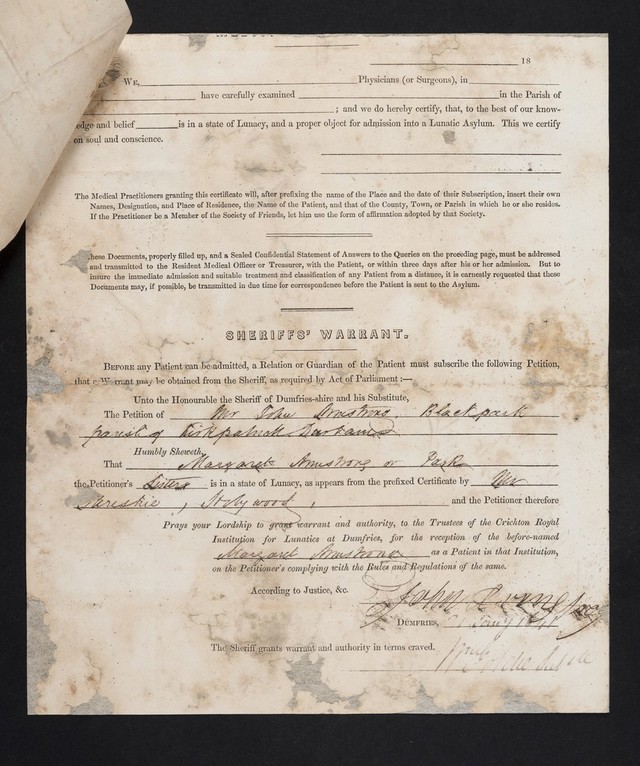 18
WE, Physicians (or Surgeons), in
have carefully examined in the Parish of
; and we do hereby certify, that, to the best of our know-
edge and belief is in a state of Lunacy, and a proper object for admission into a Lunatic Asylum. This we certify
on soul and conscience.
The Medical Practitioners granting this certificate will, after prefixing the name of the Place and the date of their Subscription, insert their own
Names, Designation, and Place of Residence, the Name of the Patient, and that of the County, Town, or Parish in which he or she resides.
If the Practitioner be a Member of the Society of Friends, let him use the form of affirmation adopted by that Society.
hese Documents, properly filled up, and a Sealed Confidential Statement of Answers to the Queries on the preceding page, must be addressed
and transmitted to the Resident Medical Officer or Treasurer, with the Patient, or within three days after his or her admission. But to
insure the immediate admission and suitable treatment and classification of any Patient from a distance, it is earnestly requested that these
Documents may, if possible, be transmitted in due time for correspondence before the Patient is sent to the Asylum.
SHERIFFS' WARRANT.
BEFORE any Patient can be admitted, a Relation or Guardian of the Patient must subscribe the following Petition,
that a Warrant may be obtained from the Sheriff, as required by Act of Parliament:—
Unto the Honourable the Sheriff of Dumfries-shire and his Substitute,
The Petition of Mr John Armstrong, Blackpark
parish of Kirkpatrick Durham
Humbly Sheweth,
That Margaret Armstrong or Park
the Petitioner's Sister is in a state of Lunacy, as appears from the prefixed Certificate by Mr
, Holywood, and the Petitioner therefore
Prays your Lordship to grant warrant and authority, to the Trustees of the Crichton Royal
Institution for Lunatics at Dumfries, for the reception of the before-named
Margaret Armstrong as a Patient in that Institution,
on the Petitioner's complying with the Rules and Regulations of the same.
According to Justice, &c.
John
DUMFRIES,
The Sheriff grants warrant and authority in terms craved.